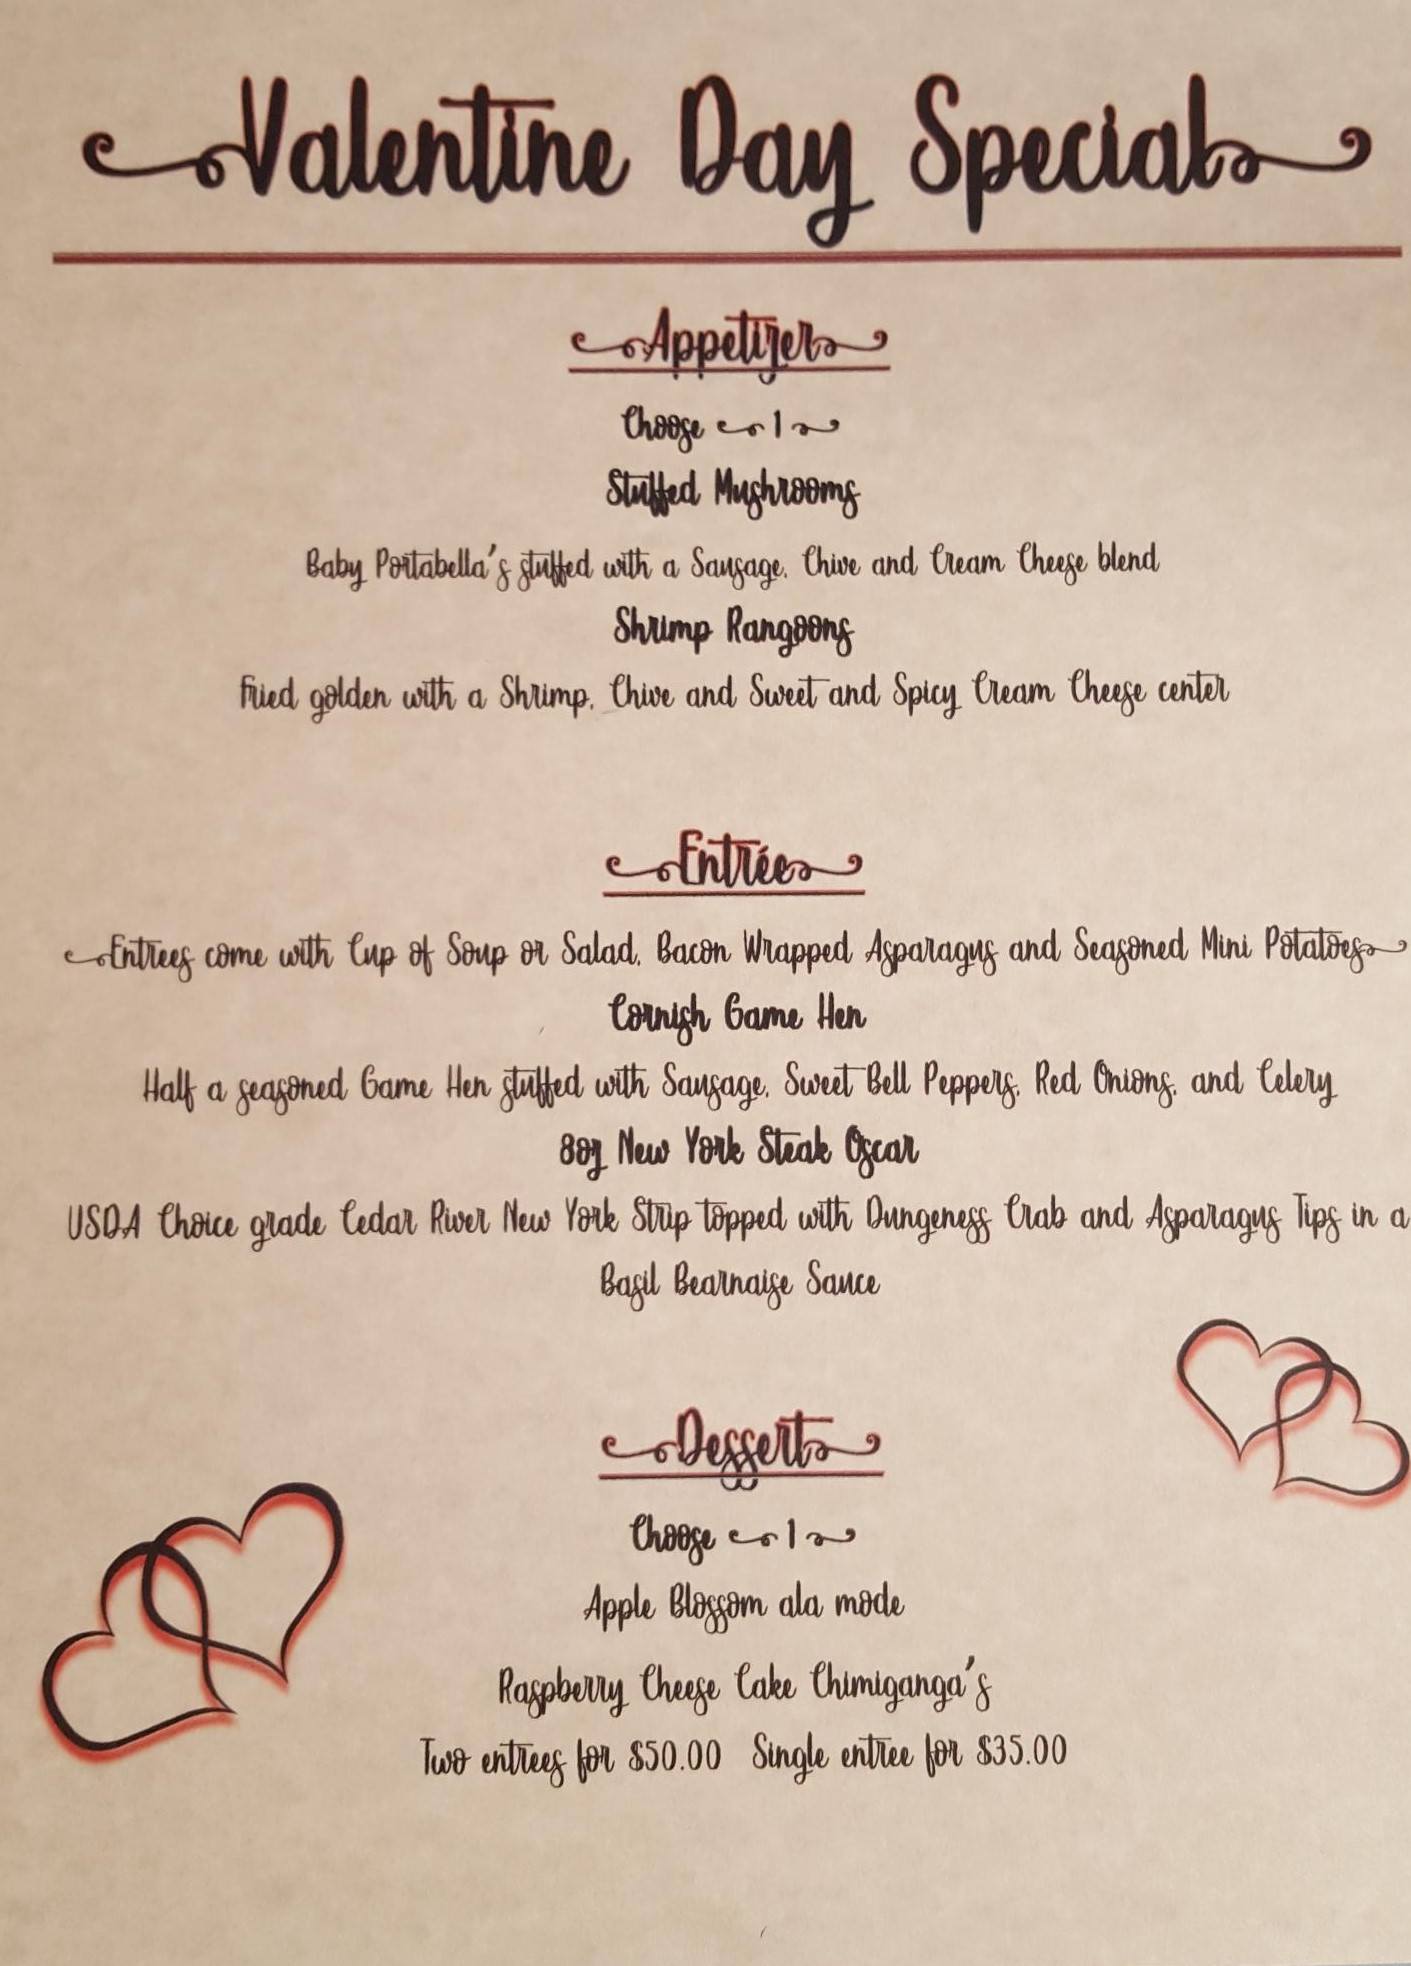 Valentine Day Special
Appetizer
Choose 1
Stuffed Mushrooms
Baby Portabella's stuffed with a Sausage, Chive and Cream Cheese blend
Shrimp Rangoons
Fried golden with a Shrimp, Chive and Sweet and Spicy Cream Cheese center
Entrée
Entrees come with Cup of Soup or Salad, Bacon Wrapped Asparagus and Seasoned Mini Potatoes
Cornish Game Hen
Half a seasoned Game Hen stuffed with Sausage, Sweet Bell Peppers, Red Onions, and Celery
8oz New York Steak Oscar
USDA Choice grade Cedar River New York Strip topped with Dungeness Crab and Asparagus Tips in a
Basil Bearnaise Sauce
Dessert
Choose 1
Apple Blossom ala mode
Raspberry Cheese Cake Chimiganga's
Two entrees for $50.00 Single entree for $35.00